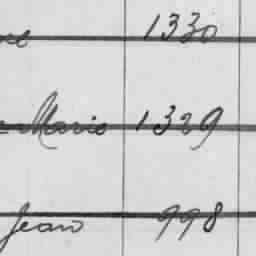 1330
Marie 1329
Jean 998